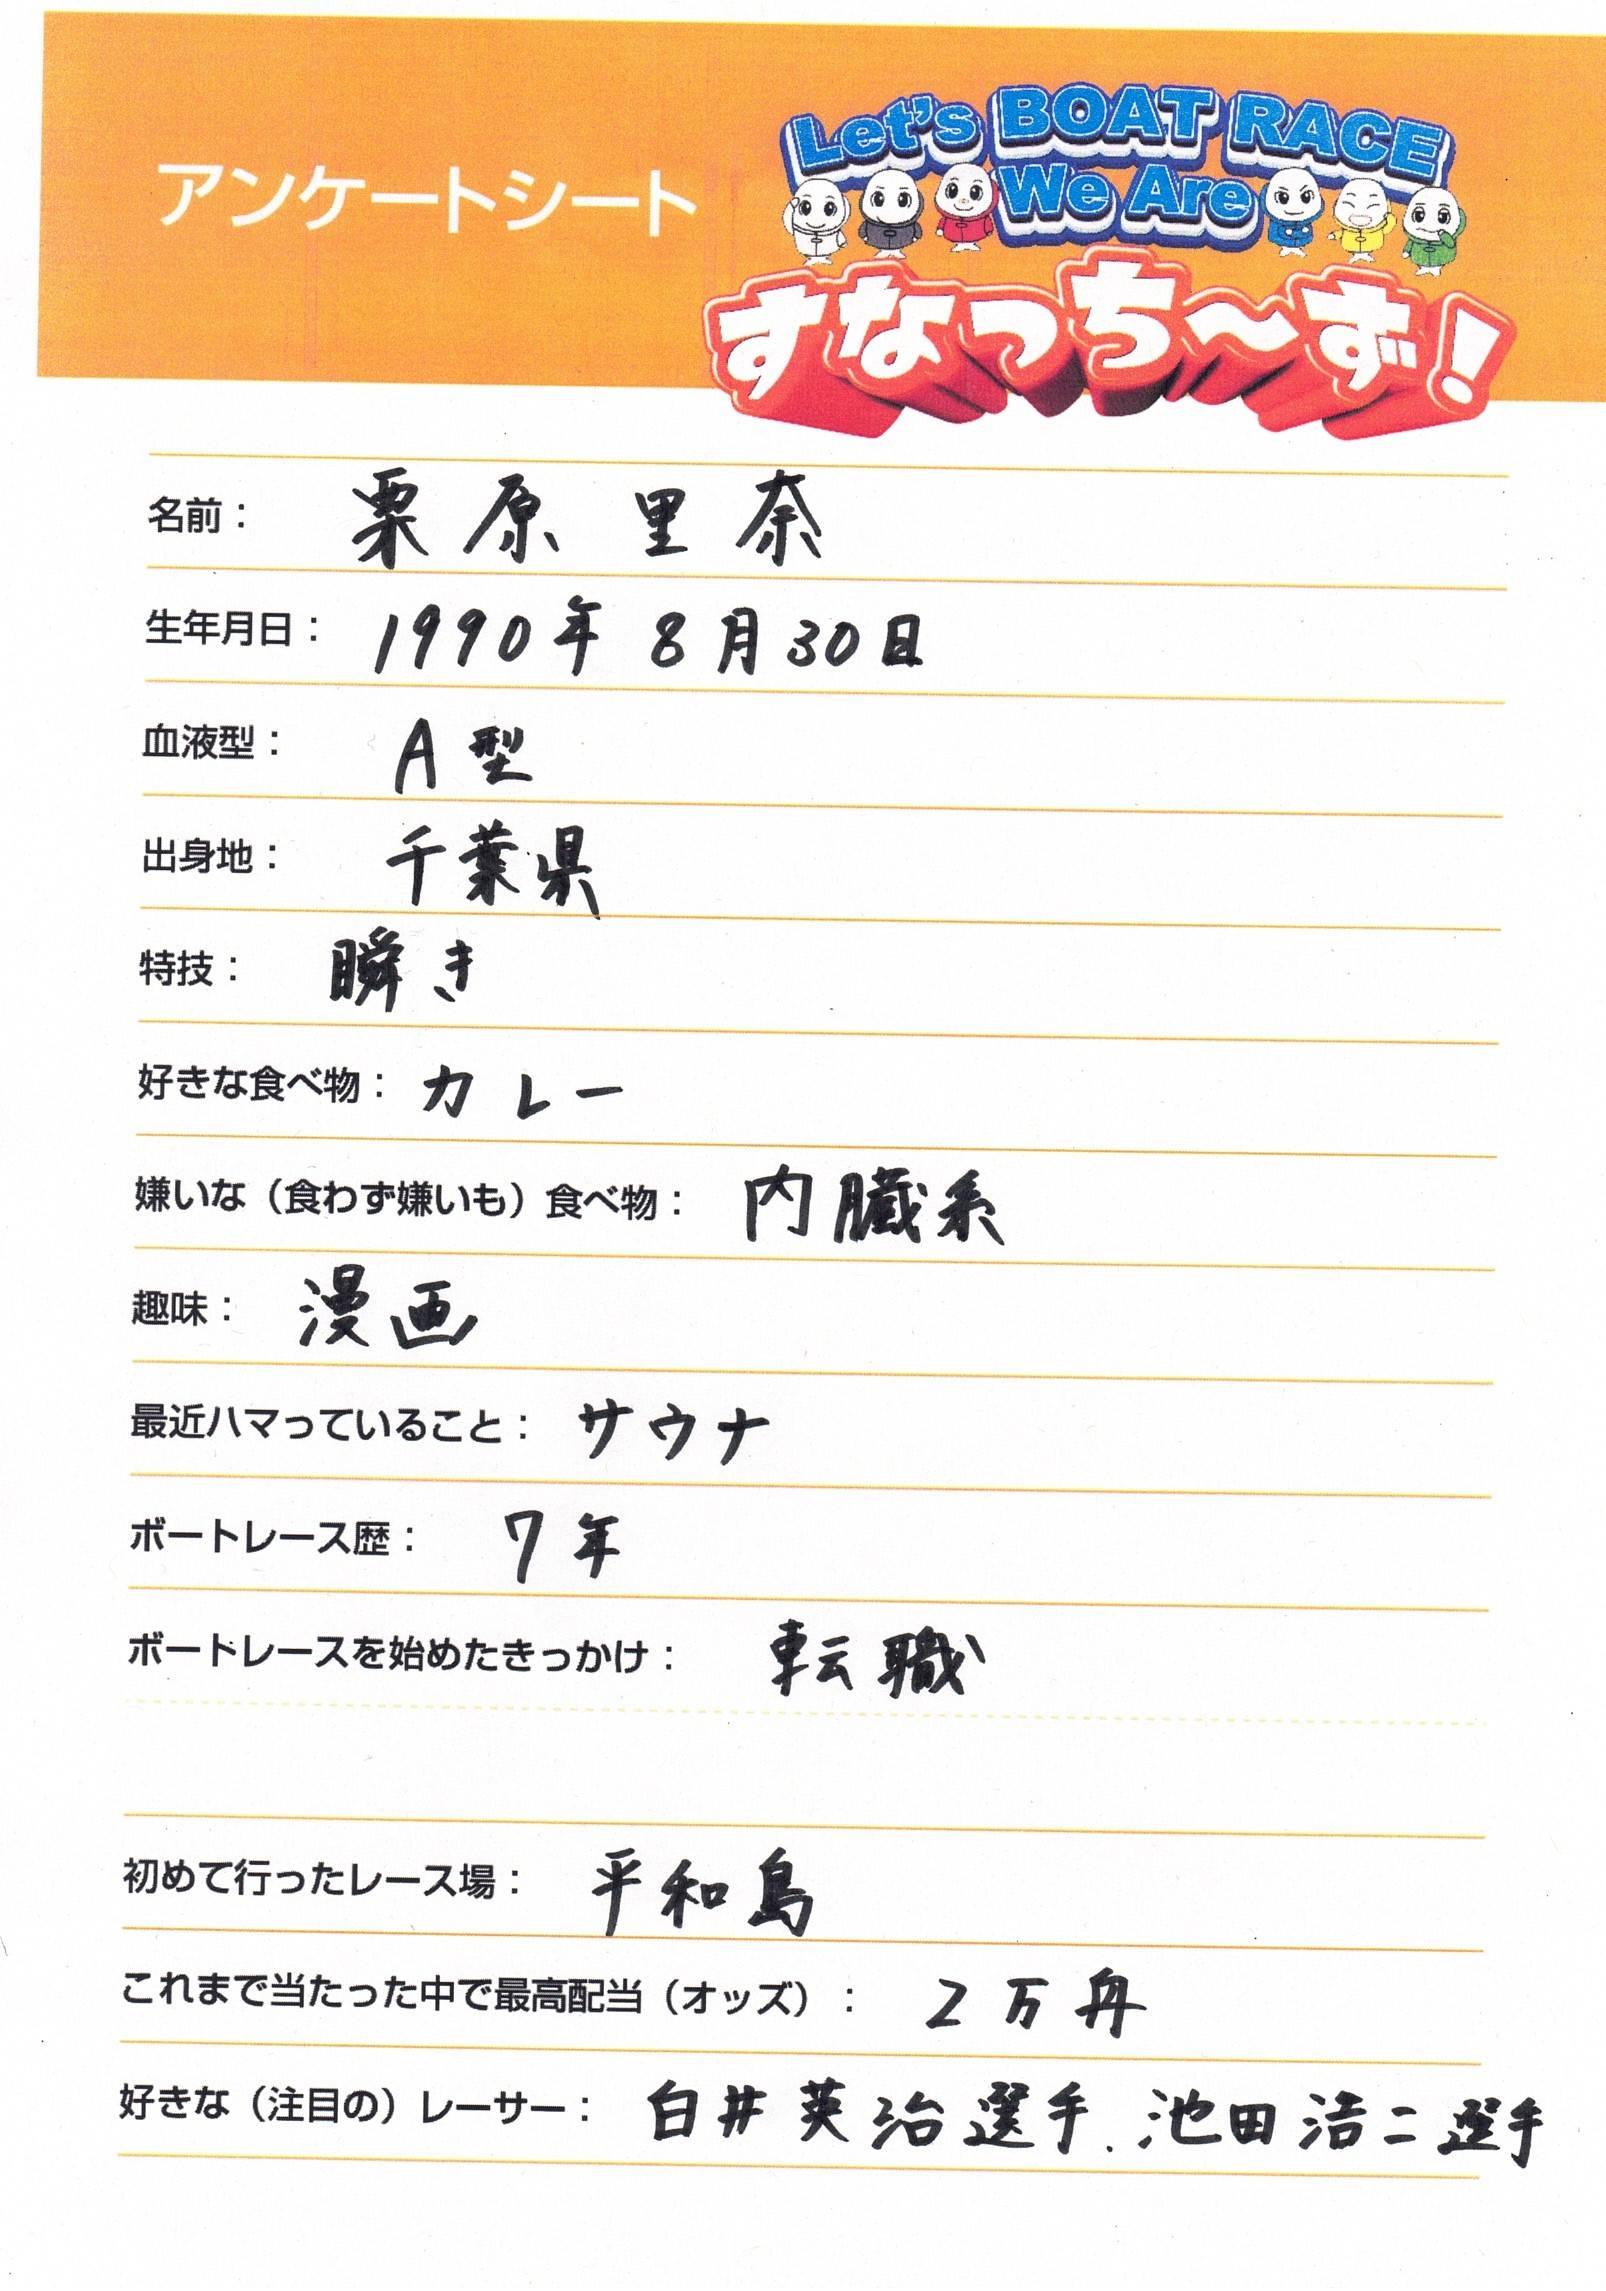 アンケートシート
Let's BOAT RACE
We Are
すなっち〜ず!
名前： 栗原里奈
生年月日： 1990年8月30日
血液型： A型
出身地： 千葉県
特技： 瞬き
好きな食べ物： カレー
嫌いな（食わず嫌いも）食べ物： 内臓系
趣味： 漫画
最近ハマっていること： サウナ
ボートレース歴： 7年
ボートレースを始めたきっかけ： 転職
初めて行ったレース場： 平和島
これまで当たった中で最高配当（オッズ）： 2万舟
好きな（注目の）レーサー： 白井英治選手、池田浩二選手